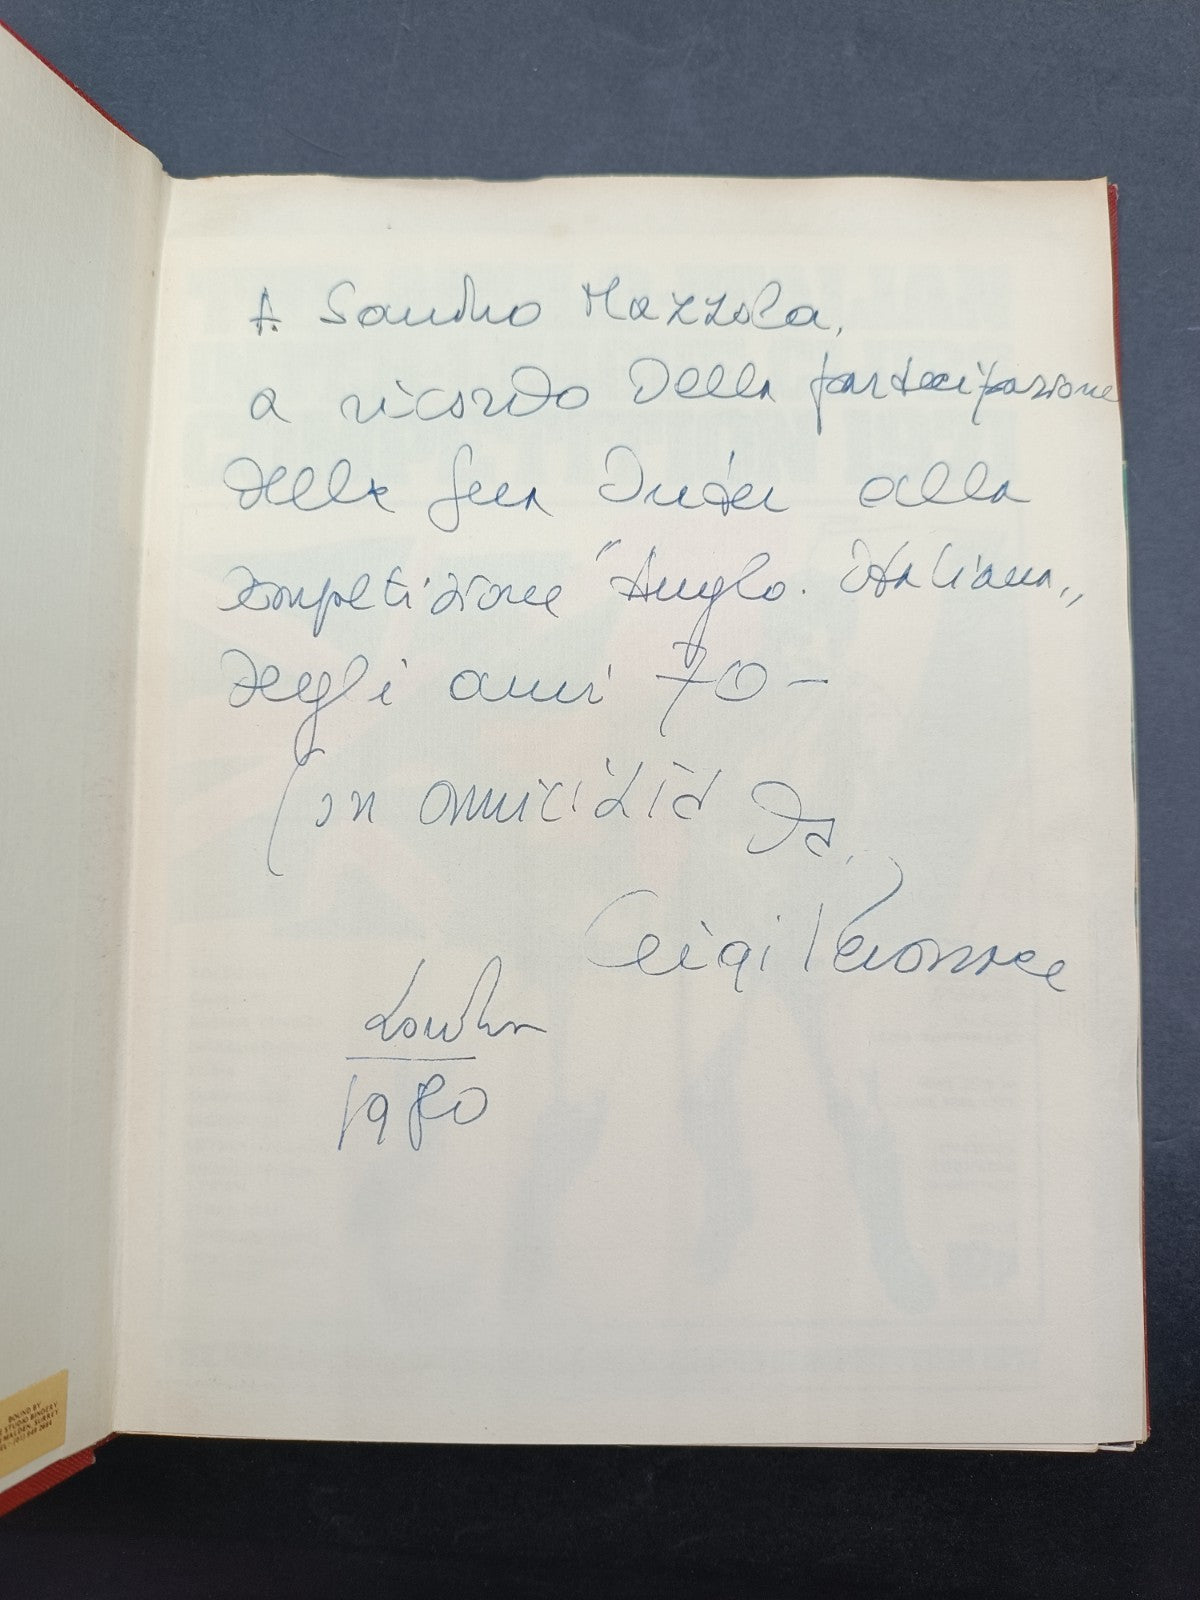 A Sandro Mazzola,
a ricordo della partecipazione
della sua Inter alla
competizione "Anglo. Italiana„
degli anni 70-
Con amicizia da,
Gigi Peronace
London
1980
BOUND BY
STUDIO BINDERY
MALDEN, SURREY